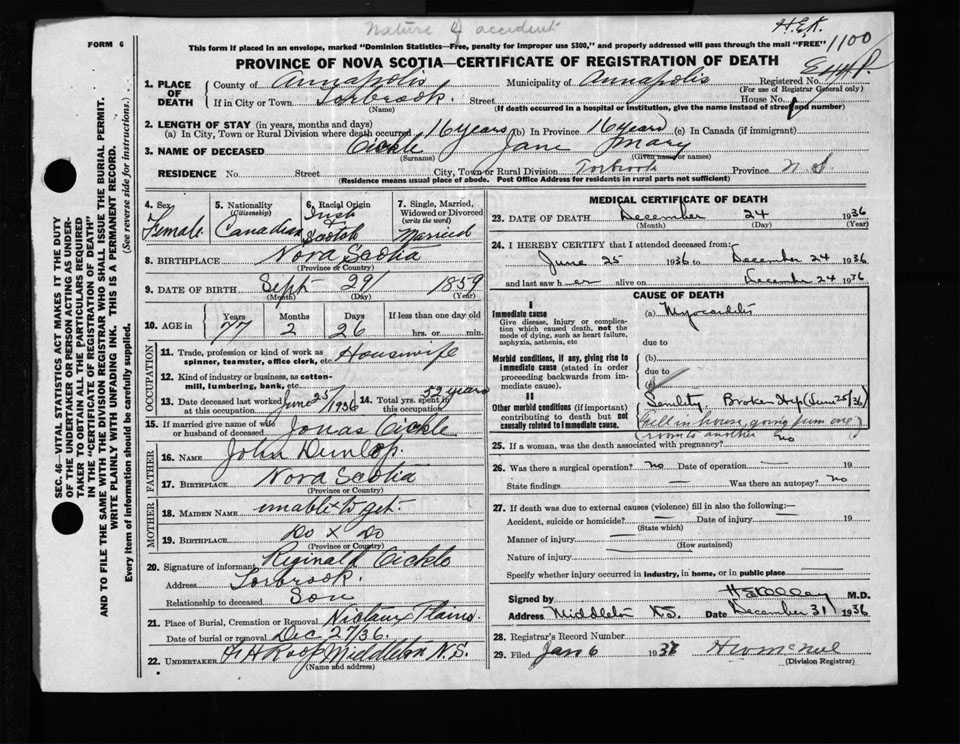 Nature of accident
H.E.K.
1100
FORM 6
This form if placed in an envelope, marked "Dominion Statistics—Free, penalty for improper use $300," and properly addressed will pass through the mail "FREE"
PROVINCE OF NOVA SCOTIA—CERTIFICATE OF REGISTRATION OF DEATH
1. PLACE OF DEATH County of Annapolis Municipality of Annapolis Registered No.
(For use of Registrar General only)
If in City or Town Torbrook. Street House No.
(Name) (If death occurred in a hospital or institution, give the name instead of street and number)
2. LENGTH OF STAY (in years, months and days)
(a) In City, Town or Rural Division where death occurred 16 years (b) In Province 16 years (c) In Canada (if immigrant)
3. NAME OF DECEASED Cickle Jane Mary
(Surname) (Given name or names)
RESIDENCE No. Street City, Town or Rural Division Torbrook Province N.S.
(Residence means usual place of abode. Post Office Address for residents in rural parts not sufficient)
4. Sex Female
5. Nationality (Citizenship) Canadian
6. Racial Origin Irish & Scotch
7. Single, Married, Widowed or Divorced (write the word) Married
8. BIRTHPLACE Nova Scotia
(Province or Country)
9. DATE OF BIRTH Sept 29 1859
(Month) (Day) (Year)
10. AGE in Years 77 Months 2 Days 26 If less than one day old hrs. or min.
OCCUPATION
11. Trade, profession or kind of work as spinner, teamster, office clerk, etc. Housewife
12. Kind of industry or business, as cotton-mill, lumbering, bank, etc.
13. Date deceased last worked at this occupation June 25/1936 14. Total yrs. spent in this occupation 52 years
15. If married give name of wife or husband of deceased Jonas Cickle
FATHER
16. NAME John Dunlop.
17. BIRTHPLACE Nova Scotia
(Province or Country)
MOTHER
18. MAIDEN NAME unable to get.
19. BIRTHPLACE Do X Do
(Province or Country)
20. Signature of informant Reginald Cickle
Address Torbrook.
Relationship to deceased Son
21. Place of Burial, Cremation or Removal Nictaux Plains.
Date of burial or removal Dec 27/36.
22. UNDERTAKER F H Roop Middleton N.S.
(Name and address)
MEDICAL CERTIFICATE OF DEATH
23. DATE OF DEATH December 24 1936
(Month) (Day) (Year)
24. I HEREBY CERTIFY that I attended deceased from:
June 25 1936 to December 24 1936
and last saw her alive on December 24 1936
CAUSE OF DEATH
I
Immediate cause (a) Myocarditis
Give disease, injury or complication which caused death, not the mode of dying, such as heart failure, asphyxia, asthenia, etc
due to
Morbid conditions, if any, giving rise to immediate cause (stated in order proceeding backwards from immediate cause). (b)
due to
(c)
II
Other morbid conditions (if important) contributing to death but not causally related to immediate cause. Senility, Broken Hip (June 25/36)
(fell in house, going from one room to another)
25. If a woman, was the death associated with pregnancy? no
26. Was there a surgical operation? no Date of operation — 19
State findings — Was there an autopsy? no
27. If death was due to external causes (violence) fill in also the following:—
Accident, suicide or homicide? — Date of injury — 19
(State which)
Manner of injury —
(How sustained)
Nature of injury —
Specify whether injury occurred in industry, in home, or in public place —
Signed by M.D.
Address Middleton N.S. Date December 31 1936
28. Registrar's Record Number
29. Filed Jan 6 1937 H W McNeil
(Division Registrar)
SEC. 46—VITAL STATISTICS ACT MAKES IT THE DUTY
OF THE UNDERTAKER OR PERSON ACTING AS UNDER-
TAKER TO OBTAIN ALL THE PARTICULARS REQUIRED
IN THE "CERTIFICATE OF REGISTRATION OF DEATH"
AND TO FILE THE SAME WITH THE DIVISION REGISTRAR WHO SHALL ISSUE THE BURIAL PERMIT.
WRITE PLAINLY WITH UNFADING INK. THIS IS A PERMANENT RECORD.
Every item of Information should be carefully supplied. (See reverse side for instructions.)